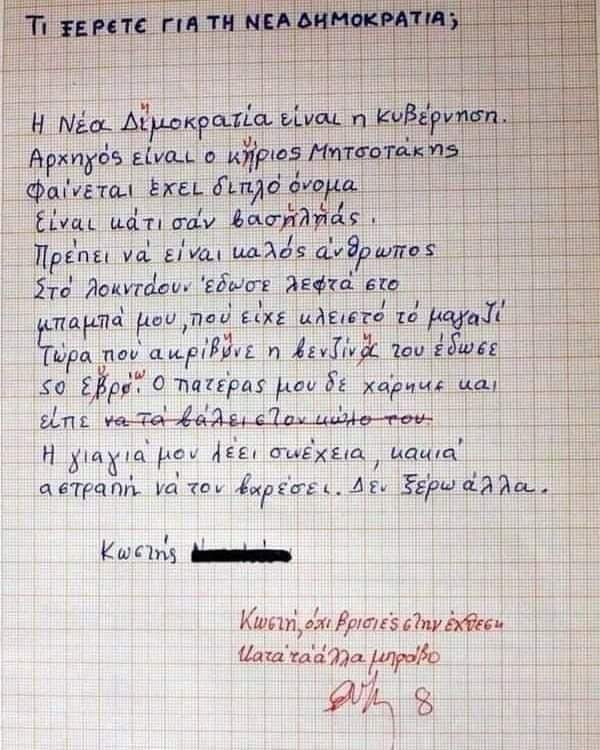 ΤΙ ΞΕΡΕΤΕ ΓΙΑ ΤΗ ΝΕΑ ΔΗΜΟΚΡΑΤΙΑ;
Η Νέα Δημοκρατία είναι η κυβέρνηση.
Αρχηγός είναι ο κύριος Μητσοτάκης
Φαίνεται έχει διπλό όνομα
Είναι κάτι σάν βασηληάς.
Πρέπει νά είναι καλός άνθρωπος
Στό λοκντάουν έδωσε λεφτά στο
μπαμπά μου, πού είχε κλειστό τό μαγαζί
Τώρα πού ακρίβυνε η βενζίνα του έδωσε
50 εβρό. Ο πατέρας μου δε χάρηκε και
είπε να τά βάλει στον κώλο του
Η γιαγιά μου λέει συνέχεια, κακιά
αστραπή νά τον βαρέσει. Δεν ξέρω άλλα.
Κωστής
Κωστή, όχι βρισιές στην έκθεση
Κατά τα άλλα μπράβο
8